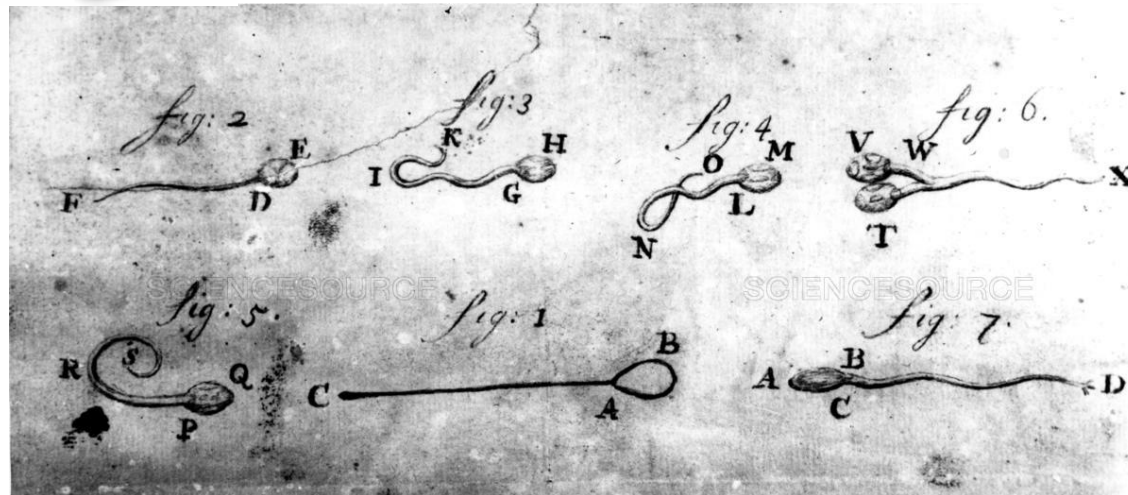 fig: 2
F
D
E
fig: 3
K
I
G
H
fig: 4
O
M
L
N
fig: 6.
V
W
T
X
SCIENCESOURCE
SCIENCESOURCE
fig: 5.
R
S
Q
P
fig: 1
B
C
A
fig: 7.
A
B
C
D